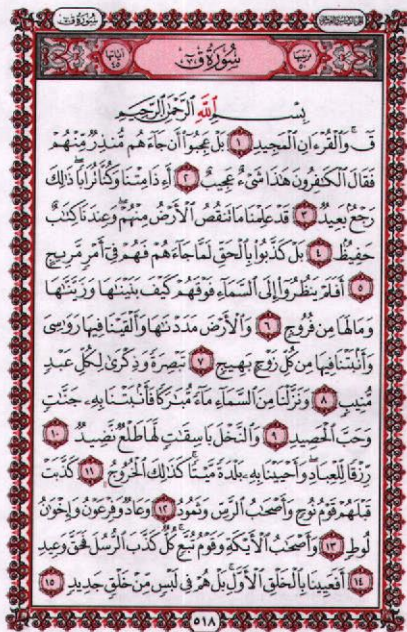 سُورَةُ ق
ترتيبها ٥٠ سُورَةُ قٓ آياتها ٤٥
بِسۡمِ ٱللَّهِ ٱلرَّحۡمَٰنِ ٱلرَّحِيمِ
قٓۚ وَٱلۡقُرۡءَانِ ٱلۡمَجِيدِ ١ بَلۡ عَجِبُوٓاْ أَن جَآءَهُم مُّنذِرٞ مِّنۡهُمۡ
فَقَالَ ٱلۡكَٰفِرُونَ هَٰذَا شَيۡءٌ عَجِيبٌ ٢ أَءِذَا مِتۡنَا وَكُنَّا تُرَابٗاۖ ذَٰلِكَ
رَجۡعُۢ بَعِيدٞ ٣ قَدۡ عَلِمۡنَا مَا تَنقُصُ ٱلۡأَرۡضُ مِنۡهُمۡۖ وَعِندَنَا كِتَٰبٌ
حَفِيظُۢ ٤ بَلۡ كَذَّبُواْ بِٱلۡحَقِّ لَمَّا جَآءَهُمۡ فَهُمۡ فِيٓ أَمۡرٖ مَّرِيجٍ
٥ أَفَلَمۡ يَنظُرُوٓاْ إِلَى ٱلسَّمَآءِ فَوۡقَهُمۡ كَيۡفَ بَنَيۡنَٰهَا وَزَيَّنَّٰهَا
وَمَا لَهَا مِن فُرُوجٖ ٦ وَٱلۡأَرۡضَ مَدَدۡنَٰهَا وَأَلۡقَيۡنَا فِيهَا رَوَٰسِيَ
وَأَنۢبَتۡنَا فِيهَا مِن كُلِّ زَوۡجِۭ بَهِيجٖ ٧ تَبۡصِرَةٗ وَذِكۡرَىٰ لِكُلِّ عَبۡدٖ
مُّنِيبٖ ٨ وَنَزَّلۡنَا مِنَ ٱلسَّمَآءِ مَآءٗ مُّبَٰرَكٗا فَأَنۢبَتۡنَا بِهِۦ جَنَّٰتٖ
وَحَبَّ ٱلۡحَصِيدِ ٩ وَٱلنَّخۡلَ بَاسِقَٰتٖ لَّهَا طَلۡعٞ نَّضِيدٞ ١٠
رِّزۡقٗا لِّلۡعِبَادِۖ وَأَحۡيَيۡنَا بِهِۦ بَلۡدَةٗ مَّيۡتٗاۚ كَذَٰلِكَ ٱلۡخُرُوجُ ١١ كَذَّبَتۡ
قَبۡلَهُمۡ قَوۡمُ نُوحٖ وَأَصۡحَٰبُ ٱلرَّسِّ وَثَمُودُ ١٢ وَعَادٞ وَفِرۡعَوۡنُ وَإِخۡوَٰنُ
لُوطٖ ١٣ وَأَصۡحَٰبُ ٱلۡأَيۡكَةِ وَقَوۡمُ تُبَّعٖۚ كُلّٞ كَذَّبَ ٱلرُّسُلَ فَحَقَّ وَعِيدِ
١٤ أَفَعَيِينَا بِٱلۡخَلۡقِ ٱلۡأَوَّلِۚ بَلۡ هُمۡ فِي لَبۡسٖ مِّنۡ خَلۡقٖ جَدِيدٖ ١٥
٥١٨